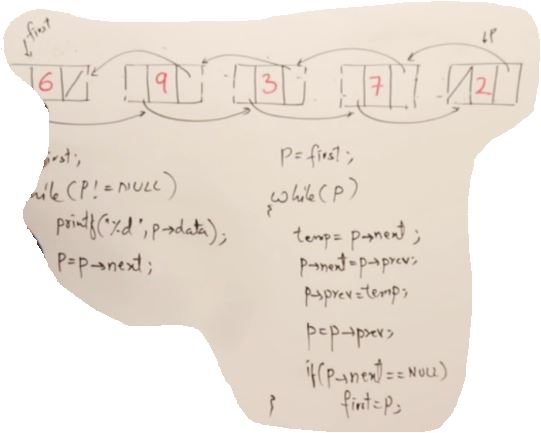 first
p
6 9 3 7 2
first;
while (P! = NULL)
printf("%d", p→data);
P=p→next;
P=first;
while (P)
{
temp= p→next;
p→next=p→prev;
p→prev=temp;
p=p→prev;
if(p→next==NULL)
first=p;
}